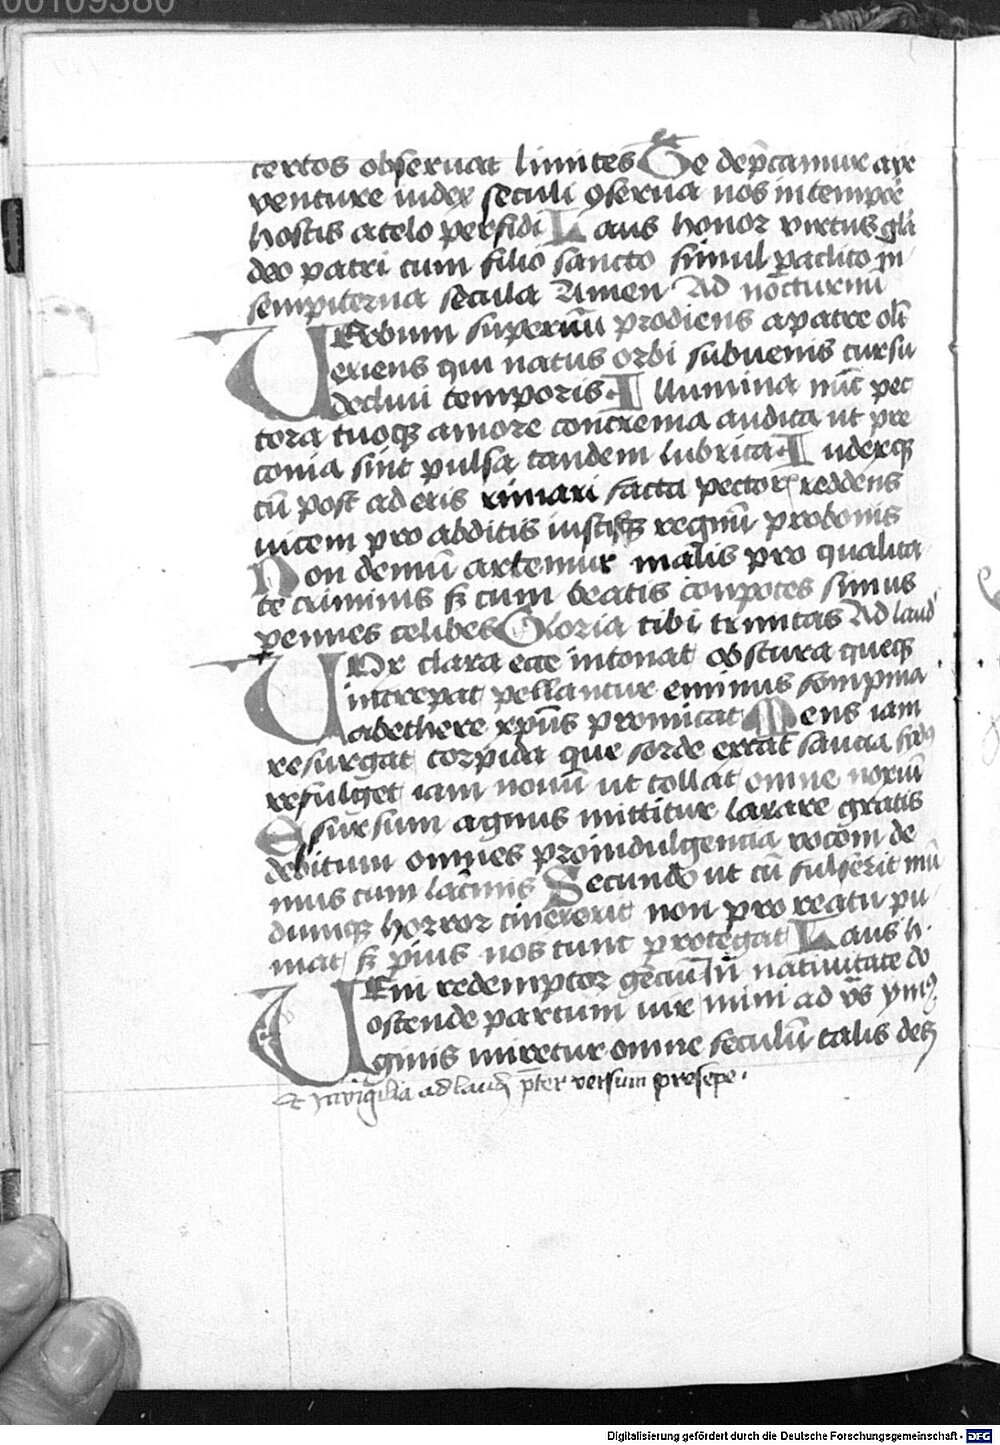 00109380
certos obseruat limites Te dep̄camur agie
venture iudex seculi ꝯserua nos in tempore
hostis a telo perfidi Laus honor virtus gl'a
deo patri cum filio sancto simul paclito in
sempiterna secula Amen Ad nocturnū
UErbum supernū prodiens a patre oli
exiens qui natus orbi subuenis cursu
decliui temporis Illumina nūc pec
tora tuoqꝫ amore concrema audita ut pre
conia sint pulsa tandem lubrica Iudexqꝫ
cū post aderis rimari facta pectorꝭ reddens
vicem pro abditis iustisqꝫ regnū pro bonis
Non demū artemur malis pro qualita
te criminis sꝫ cum beatis compotes simus
pennes celibes Gloria tibi trinitas Ad laud'
UOx clara ecce intonat obscura queqꝫ
increpat pellantur eminus sompnia
ab ethere xpūs promicat Mens iam
resurgat torpida que sorde extat saucia sidꝰ
refulget iam nouū ut tollat omne noxiū
E sursum agnus mittitur laxare gratis
debitum omnes pro indulgencia vocem de
mus cum lac̄mis Secundo ut cū fulserit mū
dumqꝫ horror cinxerit non pro reatu pu
niat sꝫ pius nos tunc protegat Laus h.
UEni redemptor genciū In natiuitate do
ostende partum uir mini ad vs̄ ymꝰ
ginis miretur omne seculū talis decꝫ
Et In vigilia ad laud' p̄ter versum presepe.
Digitalisierung gefördert durch die Deutsche Forschungsgemeinschaft - DFG